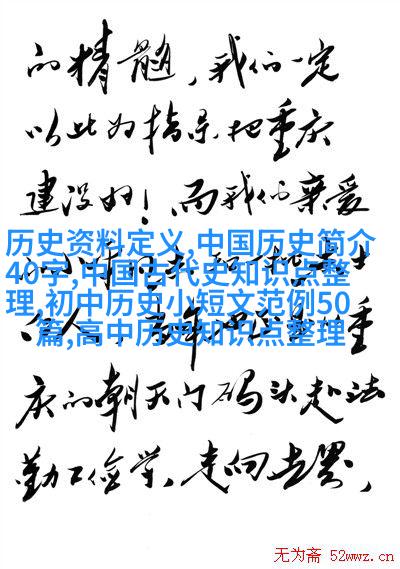 的精髓，我们一定
以此为指导把重庆
建设好！而我们亲爱
历史资料定义,中国历史简介
40字,中国古代史知识点整
理,初中历史小短文范例50
篇,高中历史知识点整理
庆的朝天门码头赴法
勤工俭学，走向世界，
无为斋 52wwz.cn